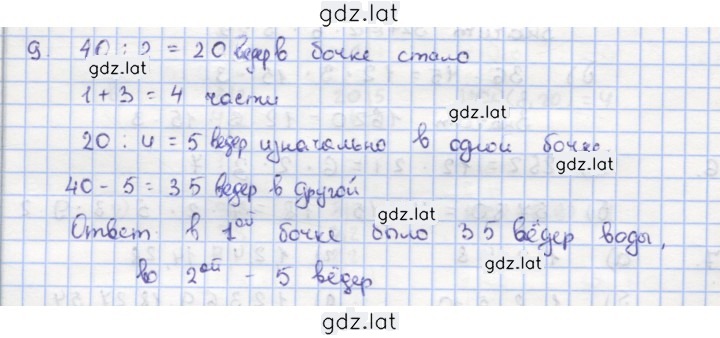 gdz.lat
9. 40 : 2 = 20 ведер в бочке стало
gdz.lat
1 + 3 = 4 части
gdz.lat
20 : 4 = 5 ведер изначально в одной бочке.
gdz.lat
40 - 5 = 35 ведер в другой
gdz.lat
Ответ: в 1ой бочке было 35 вёдер воды,
gdz.lat
во 2ой - 5 вёдер
gdz.lat
gdz.lat